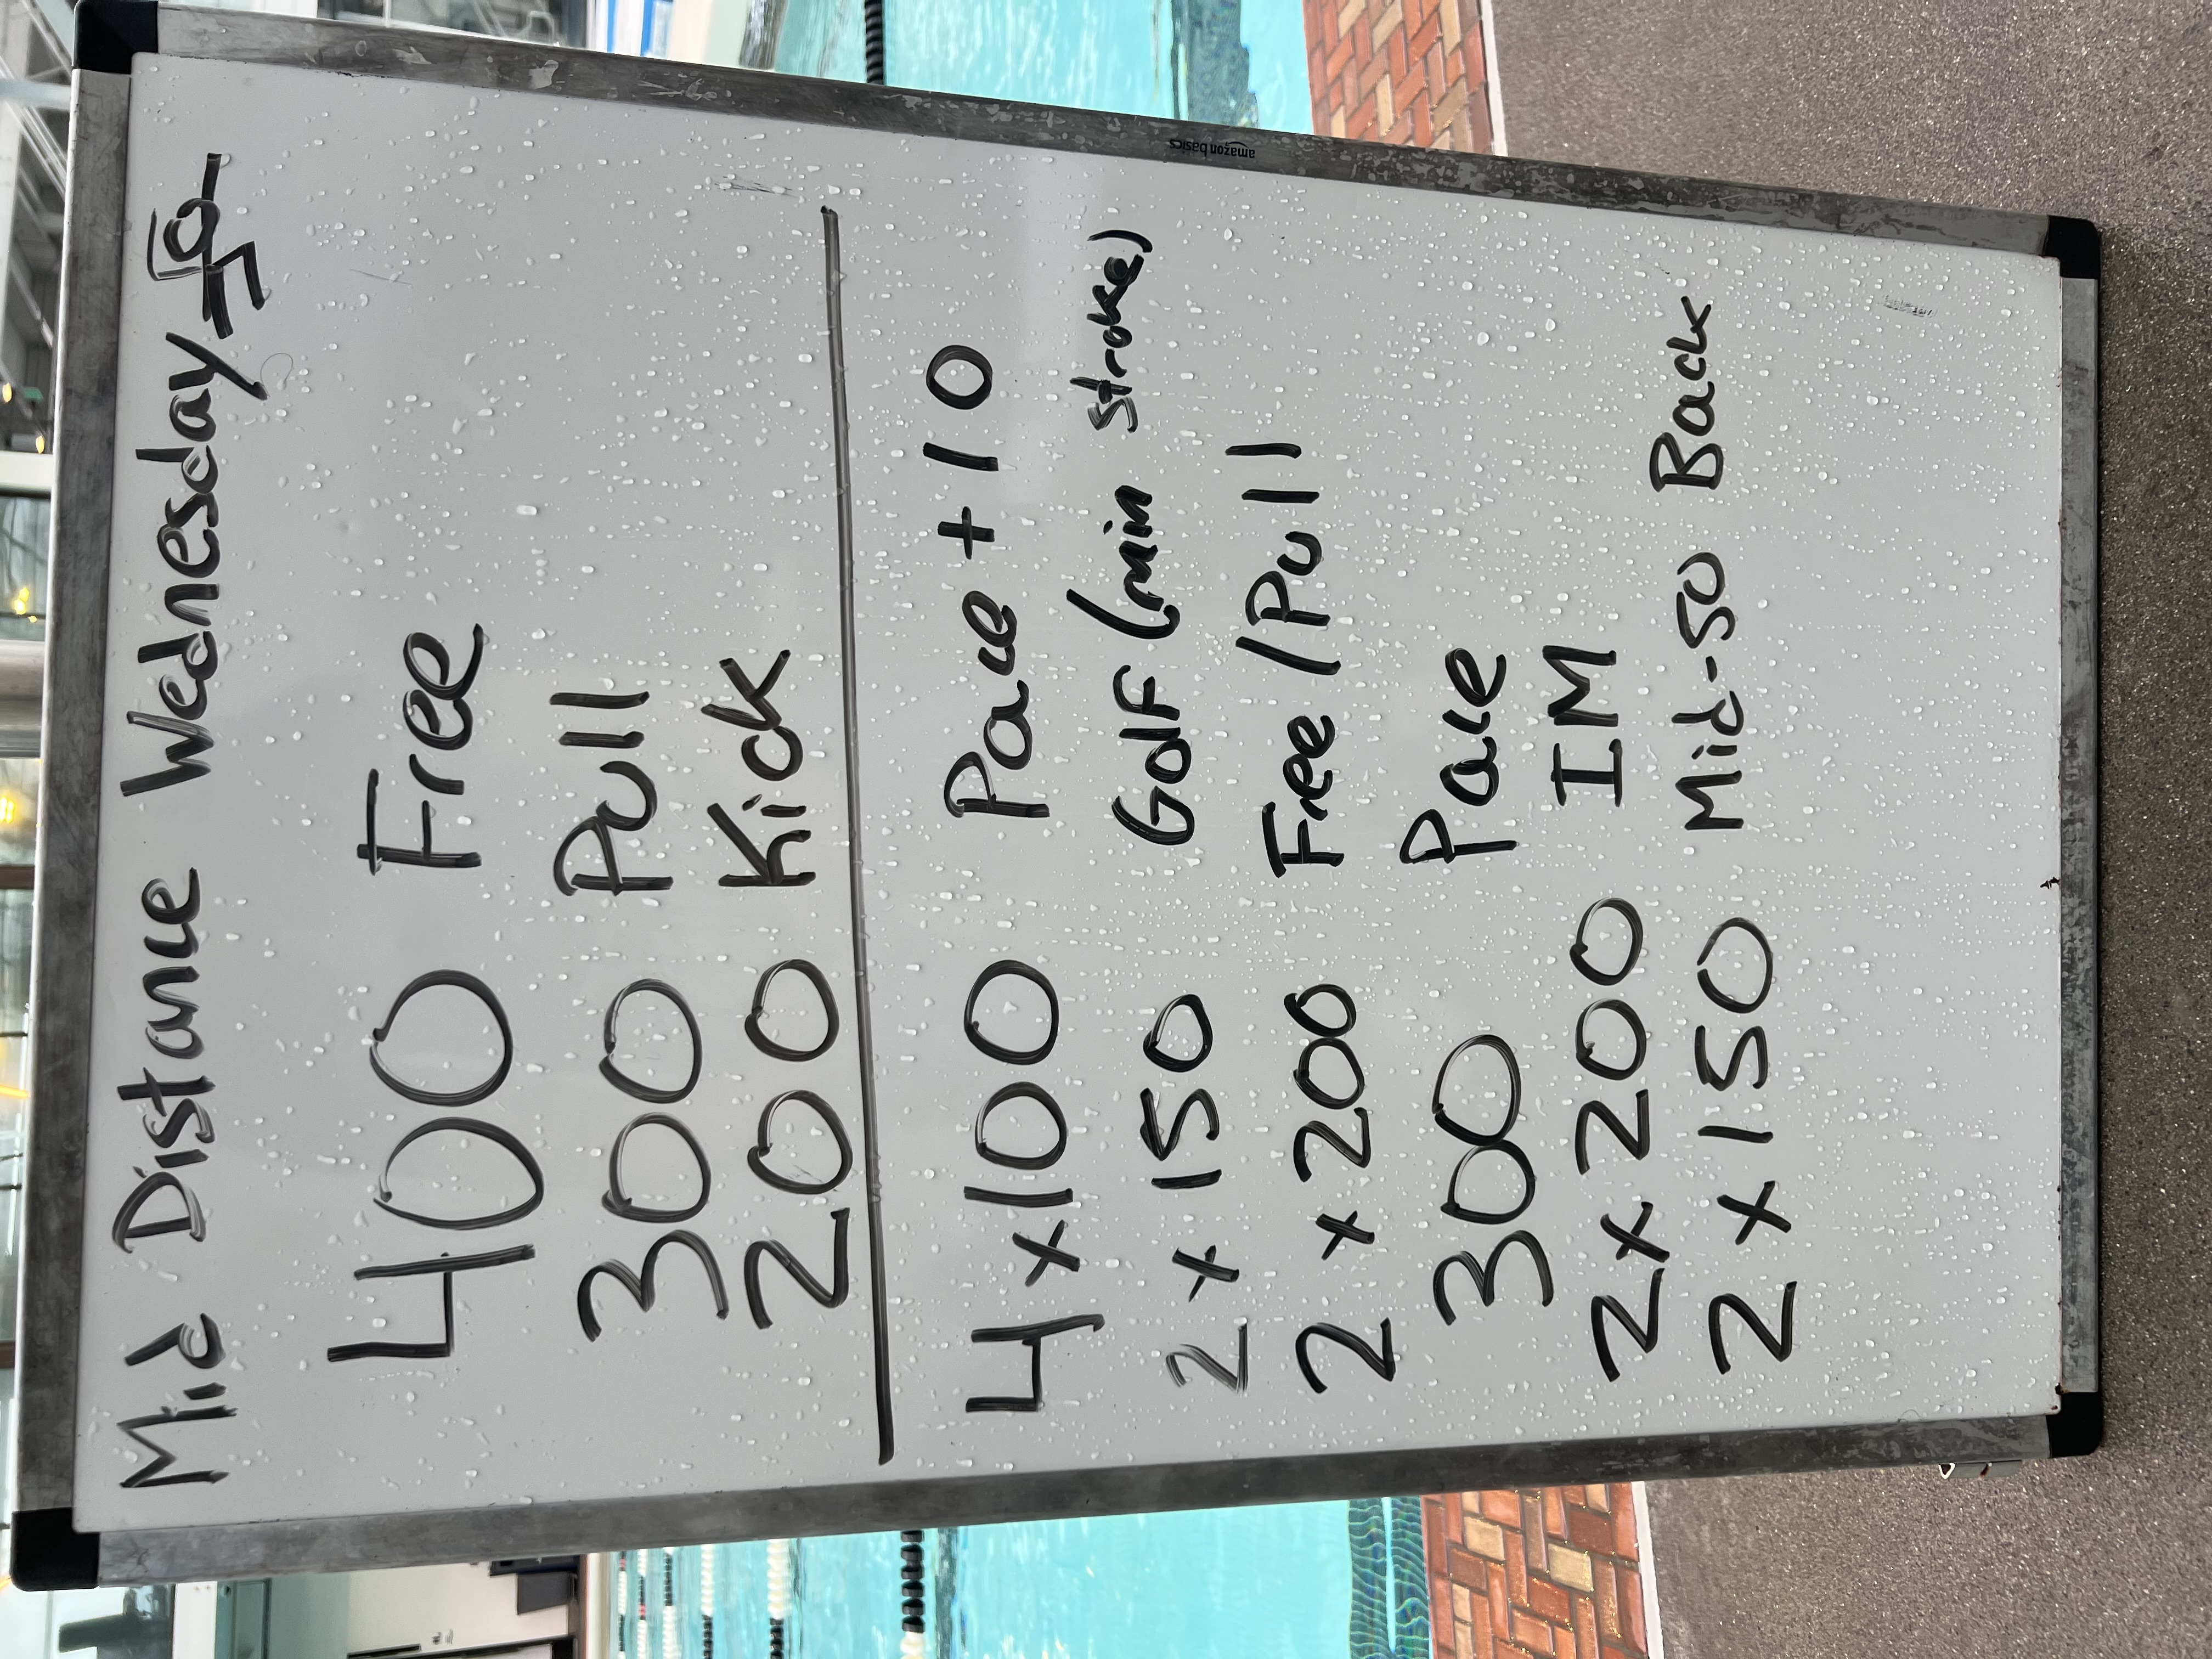 Mid Distance Wednesday
400 Free
300 Pull
200 Kick
4x100 Pace + 10
2 x 150 Golf (main stroke)
2 x 200 Free / Pull
300 Pace
2x200 IM
2x150 Mid-50 Back
amazon basics